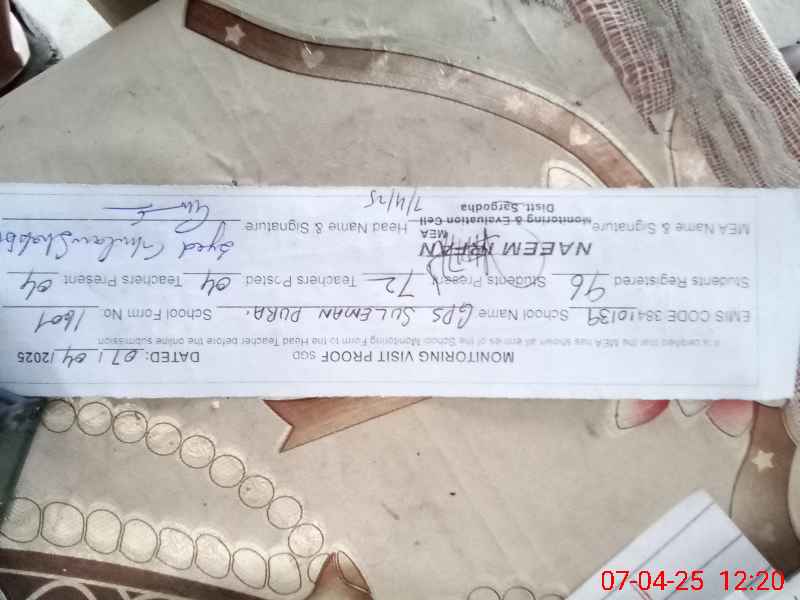 MONITORING VISIT PROOF SGD DATED: 07/04/2025
It is certified that the MEA has shown all entries of the School Monitoring Form to the Head Teacher before the online submission
EMIS CODE 38410139 School Name GPS SULEMAN PURA. School Form No. 1601
Students Registered 96 Students Present 72 Teachers Posted 04 Teachers Present 04
NAEEM IRFAN
MEA
MEA Name & Signature Monitoring & Evaluation Cell Head Name & Signature Syed Ghulam Shabbir
Distt. Sargodha
7/4/25
07-04-25 12:20